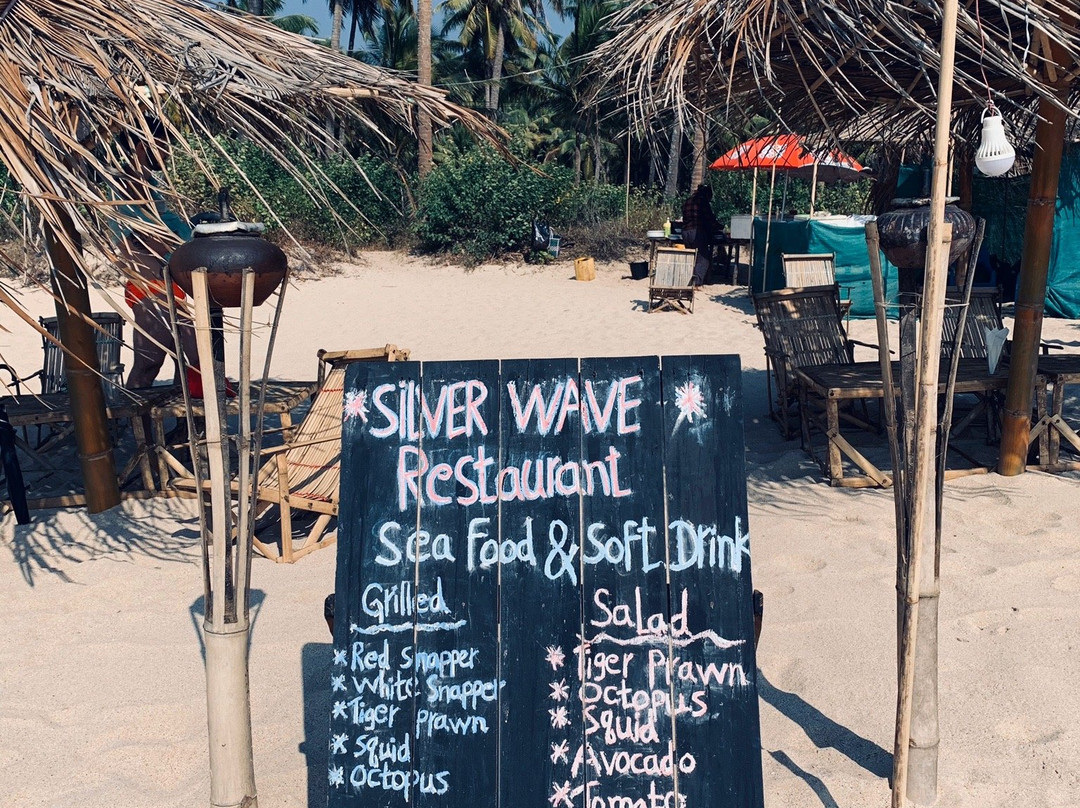 * SilVER WAVE *
Restaurant
Sea Food & Soft Drink
Grilled
* Red Snapper
* White Snapper
* Tiger Prawn
* Squid
* Octopus
Salad
* Tiger Prawn
* Octopus
* Squid
* Avocado
* Tomato